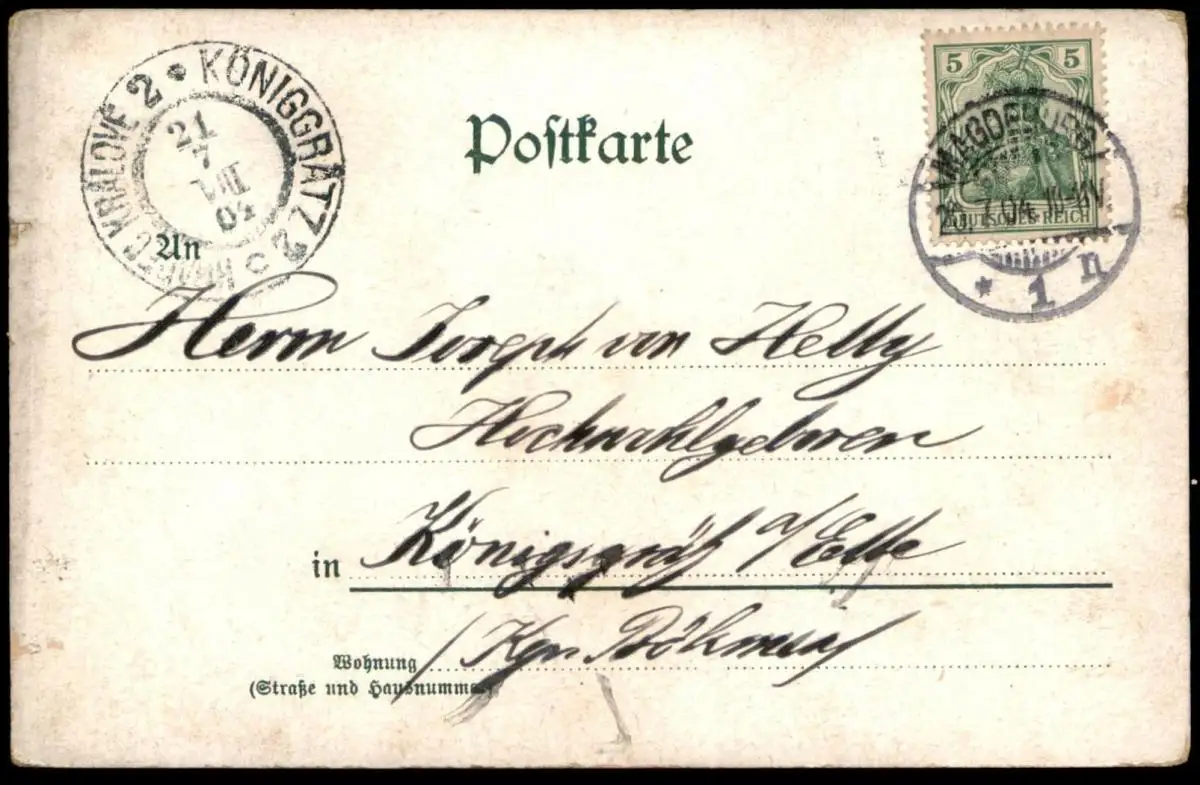 KÖNIGGRÄTZ 2
HRADEC KRÁLOVÉ 2
21
VII
04
c
Postkarte
5 5
DEUTSCHES REICH
MAGDEBURG
7.04.
* 1 n
An
Herrn Joseph von Helly
Hochwohlgeboren
in Königsgrätz a/Elbe
Wohnung /Kgr. Böhmen/
(Straße und Hausnummer)